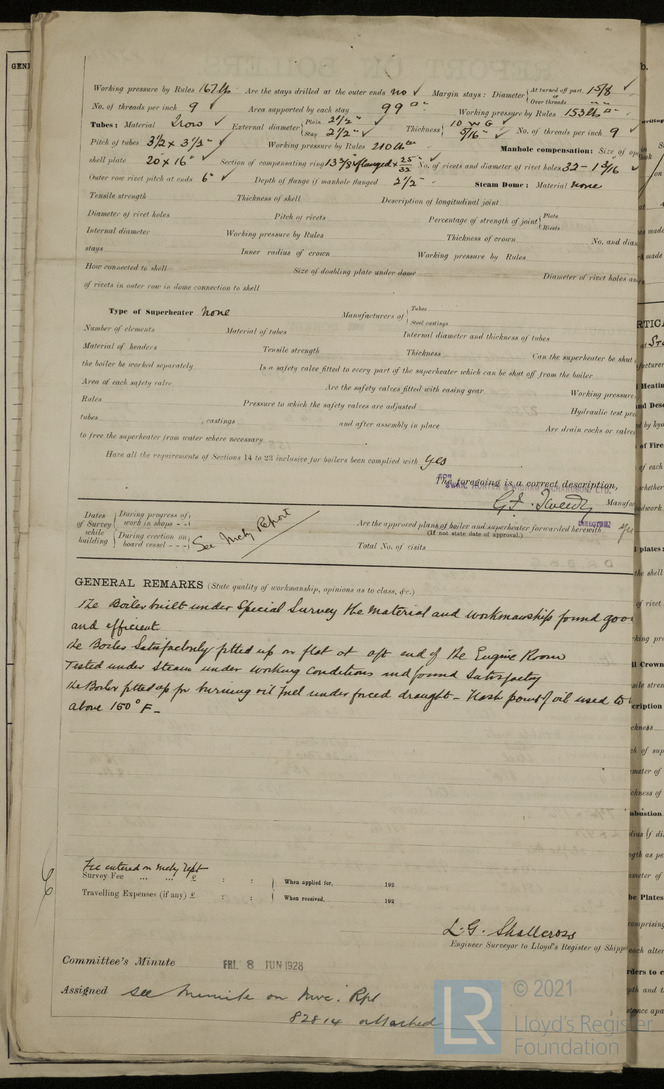 GENE
Working pressure by Rules 167 lb Are the stays drilled at the outer ends no ✓ Margin stays: Diameter { At turned off part, 1 5/8 ✓ or Over threads
No. of threads per inch 9 ✓ Area supported by each stay 99 □" ✓ Working pressure by Rules 153 lb □" ✓
Tubes: Material Iron ✓ External diameter { Plain 2 1/2" ✓ Stay 2 1/2" ✓ Thickness { 10 WG ✓ 5/16" ✓ No. of threads per inch 9 ✓
Pitch of tubes 3 1/2 x 3 1/2" ✓ Working pressure by Rules 210 lb Manhole compensation: Size of op
shell plate 20 x 16" ✓ Section of compensating ring 13 3/8 flanged x 25/32" ✓ No. of rivets and diameter of rivet holes 32 - 1 3/16 ✓
Outer row rivet pitch at ends 6" ✓ Depth of flange if manhole flanged 2 1/2" Steam Dome: Material none
Tensile strength Thickness of shell Description of longitudinal joint
Diameter of rivet holes Pitch of rivets Percentage of strength of joint { Plate Rivets
Internal diameter Working pressure by Rules Thickness of crown No. and dia
stays Inner radius of crown Working pressure by Rules
How connected to shell Size of doubling plate under dome Diameter of rivet holes an
of rivets in outer row in dome connection to shell
Type of Superheater none Manufacturers of { Tubes Steel castings
Number of elements Material of tubes Internal diameter and thickness of tubes
Material of headers Tensile strength Thickness Can the superheater be shut
the boiler be worked separately Is a safety valve fitted to every part of the superheater which can be shut off from the boiler
Area of each safety valve Are the safety valves fitted with easing gear Working pressure
Rules Pressure to which the safety valves are adjusted Hydraulic test pre
tubes , castings and after assembly in place Are drain cocks or valves
to free the superheater from water where necessary
Have all the requirements of Sections 14 to 23 inclusive for boilers been complied with yes
The foregoing is a correct description,
G. J. Tweedy Manufa
DIRECTOR
Dates of Survey while building { During progress of work in shops - - { During erection on board vessel - - - See Mchy Report
Are the approved plans of boiler and superheater forwarded herewith
(If not state date of approval.)
Total No. of visits
GENERAL REMARKS (State quality of workmanship, opinions as to class, &c.)
The Boiler built under Special Survey the material and workmanship found goo
and efficient
the Boiler Satisfactorily fitted up on flat at aft end of the Engine Room
Tested under Steam under working conditions and found Satisfactory
the Boiler fitted up for burning oil fuel under forced draught - Flash point of oil used to
above 150° F. -
Fee entered on Mchy Rpt
Survey Fee ... ... £ : : When applied for, 192
Travelling Expenses (if any) £ : : When received, 192
L. G. Shallcross
Engineer Surveyor to Lloyd's Register of Shipp
Committee's Minute FRI. 8 JUN 1928
Assigned See minute on Nwc. Rpt
82814 attached
LR © 2021
Lloyd's Register
Foundation